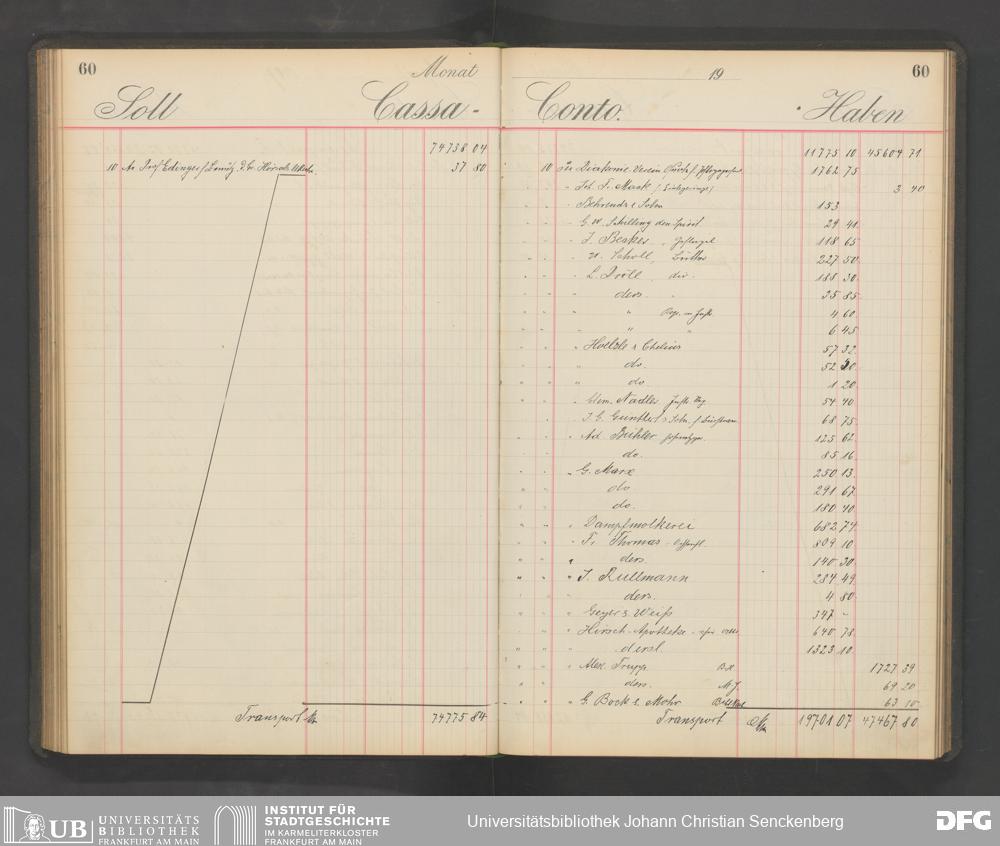 60
Monat
Soll
Cassa-
74738 04
10 An Prof Edinger f.
37 80
Transport M
74775 84
19
60
Conto.
Haben
11775 10 45604 71
10 Diakonie Verein
1762 75
Joh. Fr. Mack
3 40
Behrends & Sohn
153
G. W. Schilling
29 41
J. Becker Geflügel
118 65
Scholl, Butter
227 50
L. Dröll div.
188 30
ders.
35 85
"
4 60
" "
6 45
Hoelzle & Chelius
57 32
do.
52
do
1 20
Clem. Nadler
54 40
J. G. Günther & Sohn f.
68 75
Ad. Bühler
125 62
do.
85 16
G. Marx
250 13
do
291 67
do.
180 40
Dampfmolkerei
682 74
Fr. Thomas
809 10
ders.
140 30
J. Rullmann
284 49
ders.
4 80
Geyer & Weiß
347 -
Hirsch-Apotheke
640 78
dersl.
1323 10
Alex. Trupp
1727 39
ders.
69 20
G. Bock & Mohr
63 10
Transport M
19701 07 47467 80
UB UNIVERSITÄTS
BIBLIOTHEK
FRANKFURT AM MAIN
INSTITUT FÜR
STADTGESCHICHTE
IM KARMELITERKLOSTER
FRANKFURT AM MAIN
Universitätsbibliothek Johann Christian Senckenberg
DFG